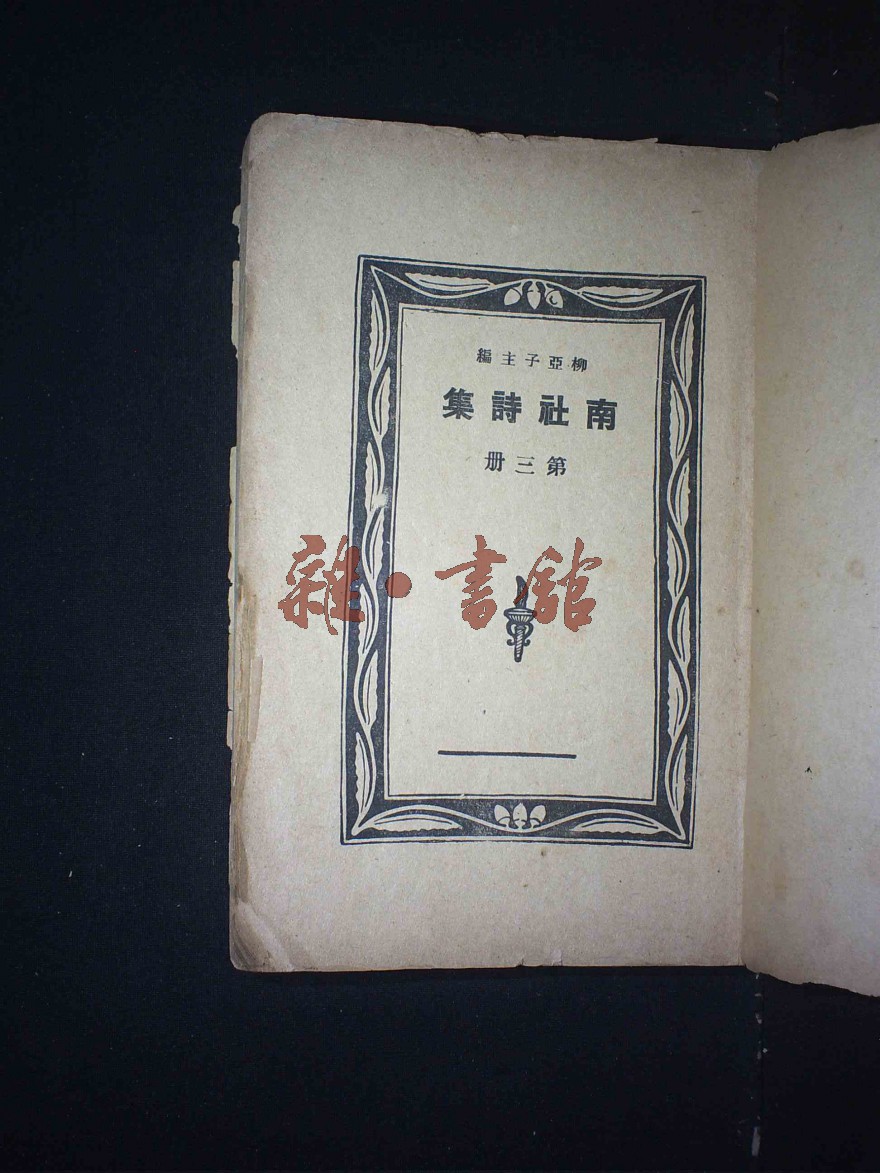 柳亞子主編
南社詩集
第三册
雜·書館